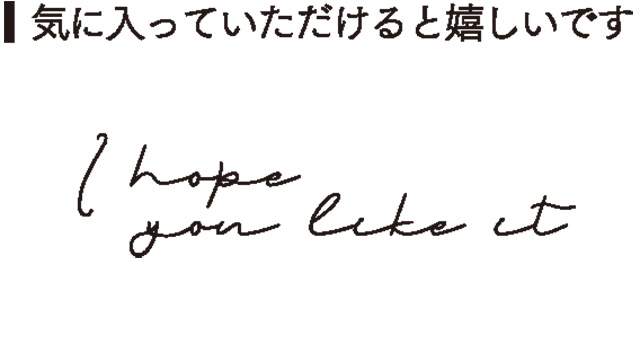 気に入っていただけると嬉しいです
I hope
you like it